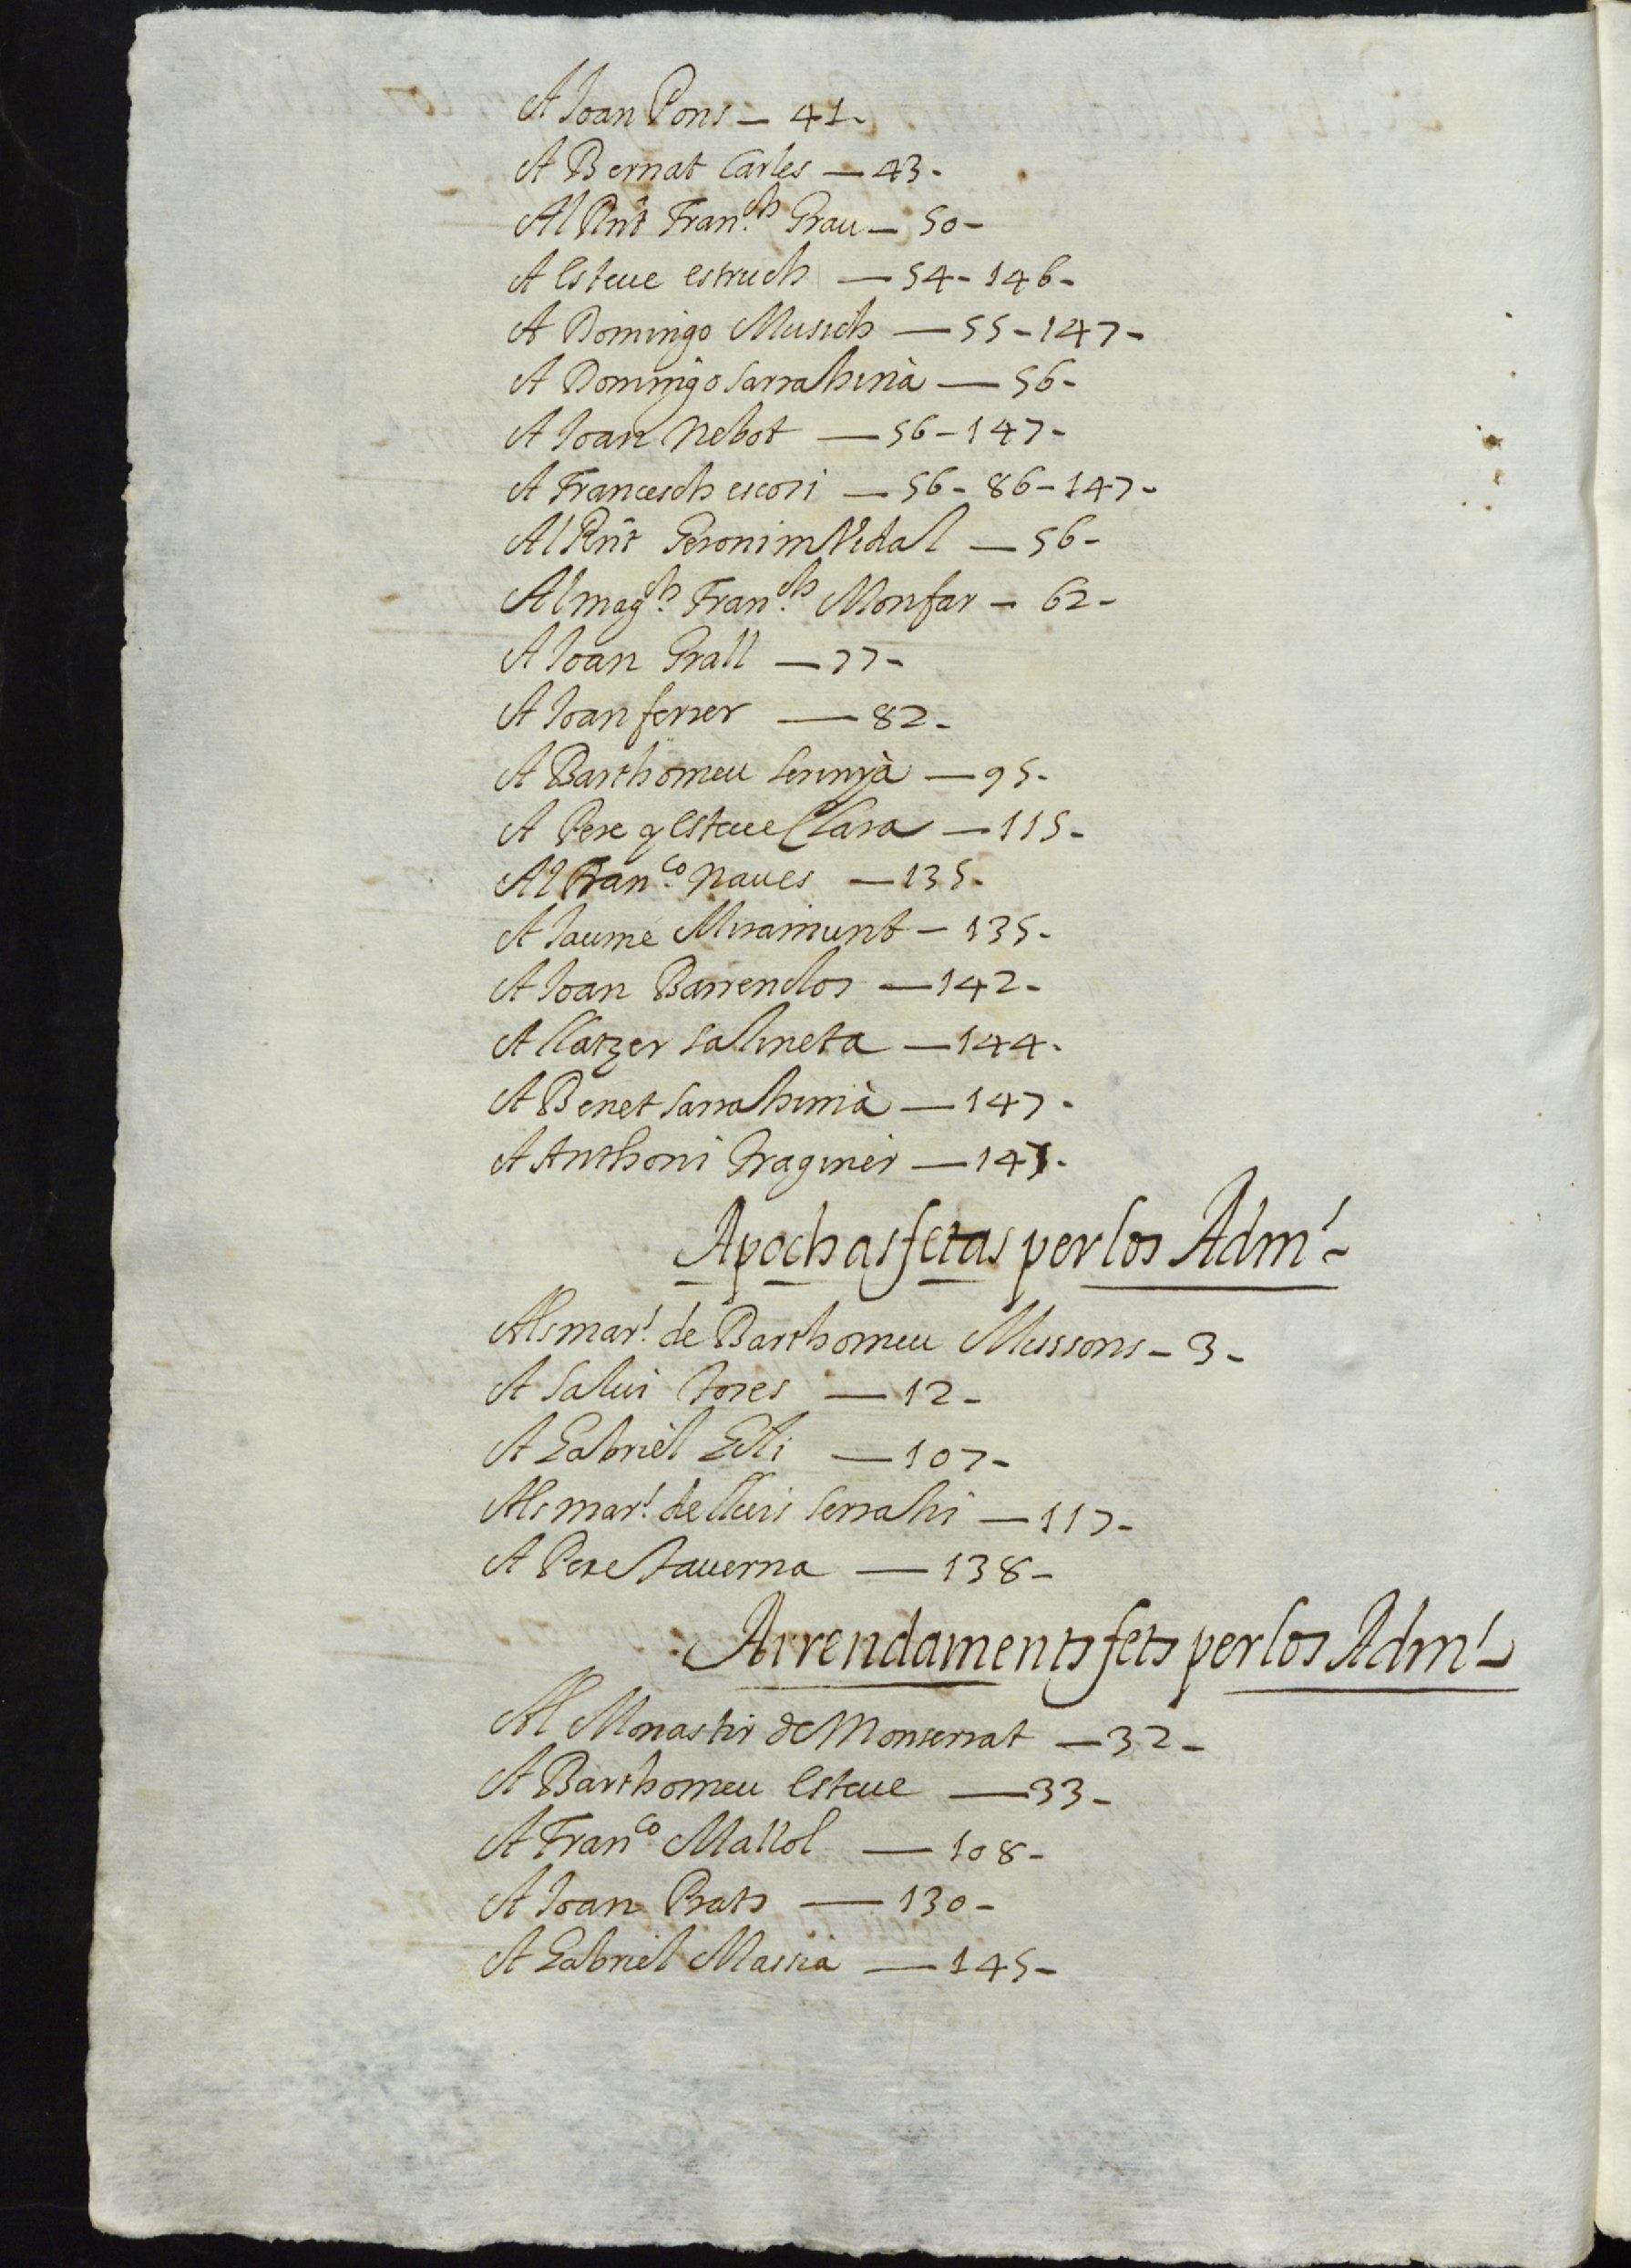 A Joan Pons — 41-
A Bernat Carles — 43-
Al Rnt Fran.ch Grau — 50-
A Esteue estruch — 54-146-
A Domingo Musich — 55-147-
A Domingo Sarrahinà — 56-
A Joan Nebot — 56-147-
A Francesch escori — 56-86-147-
Al Rnt Geronim Vidal — 56-
Al mag.ch Fran.ch Monfar — 62-
A Joan Grall — 77-
A Joan ferrer — 82-
A Barthomeu Serinyà — 95-
A Pere y Esteue Clara — 115-
Al Fran.co Naues — 135-
A Jaume Miramunt — 135-
A Joan Barrendos — 142-
A llatzer Salineta — 144-
A Benet Sarrahinià — 147-
A Anthoni Traginer —
Apochas fetas per los Adm.ˢ
Als mar.ˢ de Barthomeu Mussons — 3-
A Salui Tores — 12-
A Gabriel — 107-
Als mar.ˢ de lluis Serrahi — 117-
A Pere Tauerna — 138-
Arrendaments fets per los Adm.ˢ
Al Monastir de Monserrat — 32-
A Barthomeu Esteue — 33-
A Fran.co Mallol — 108-
A Joan Prats — 130-
A Gabriel Massià — 145-